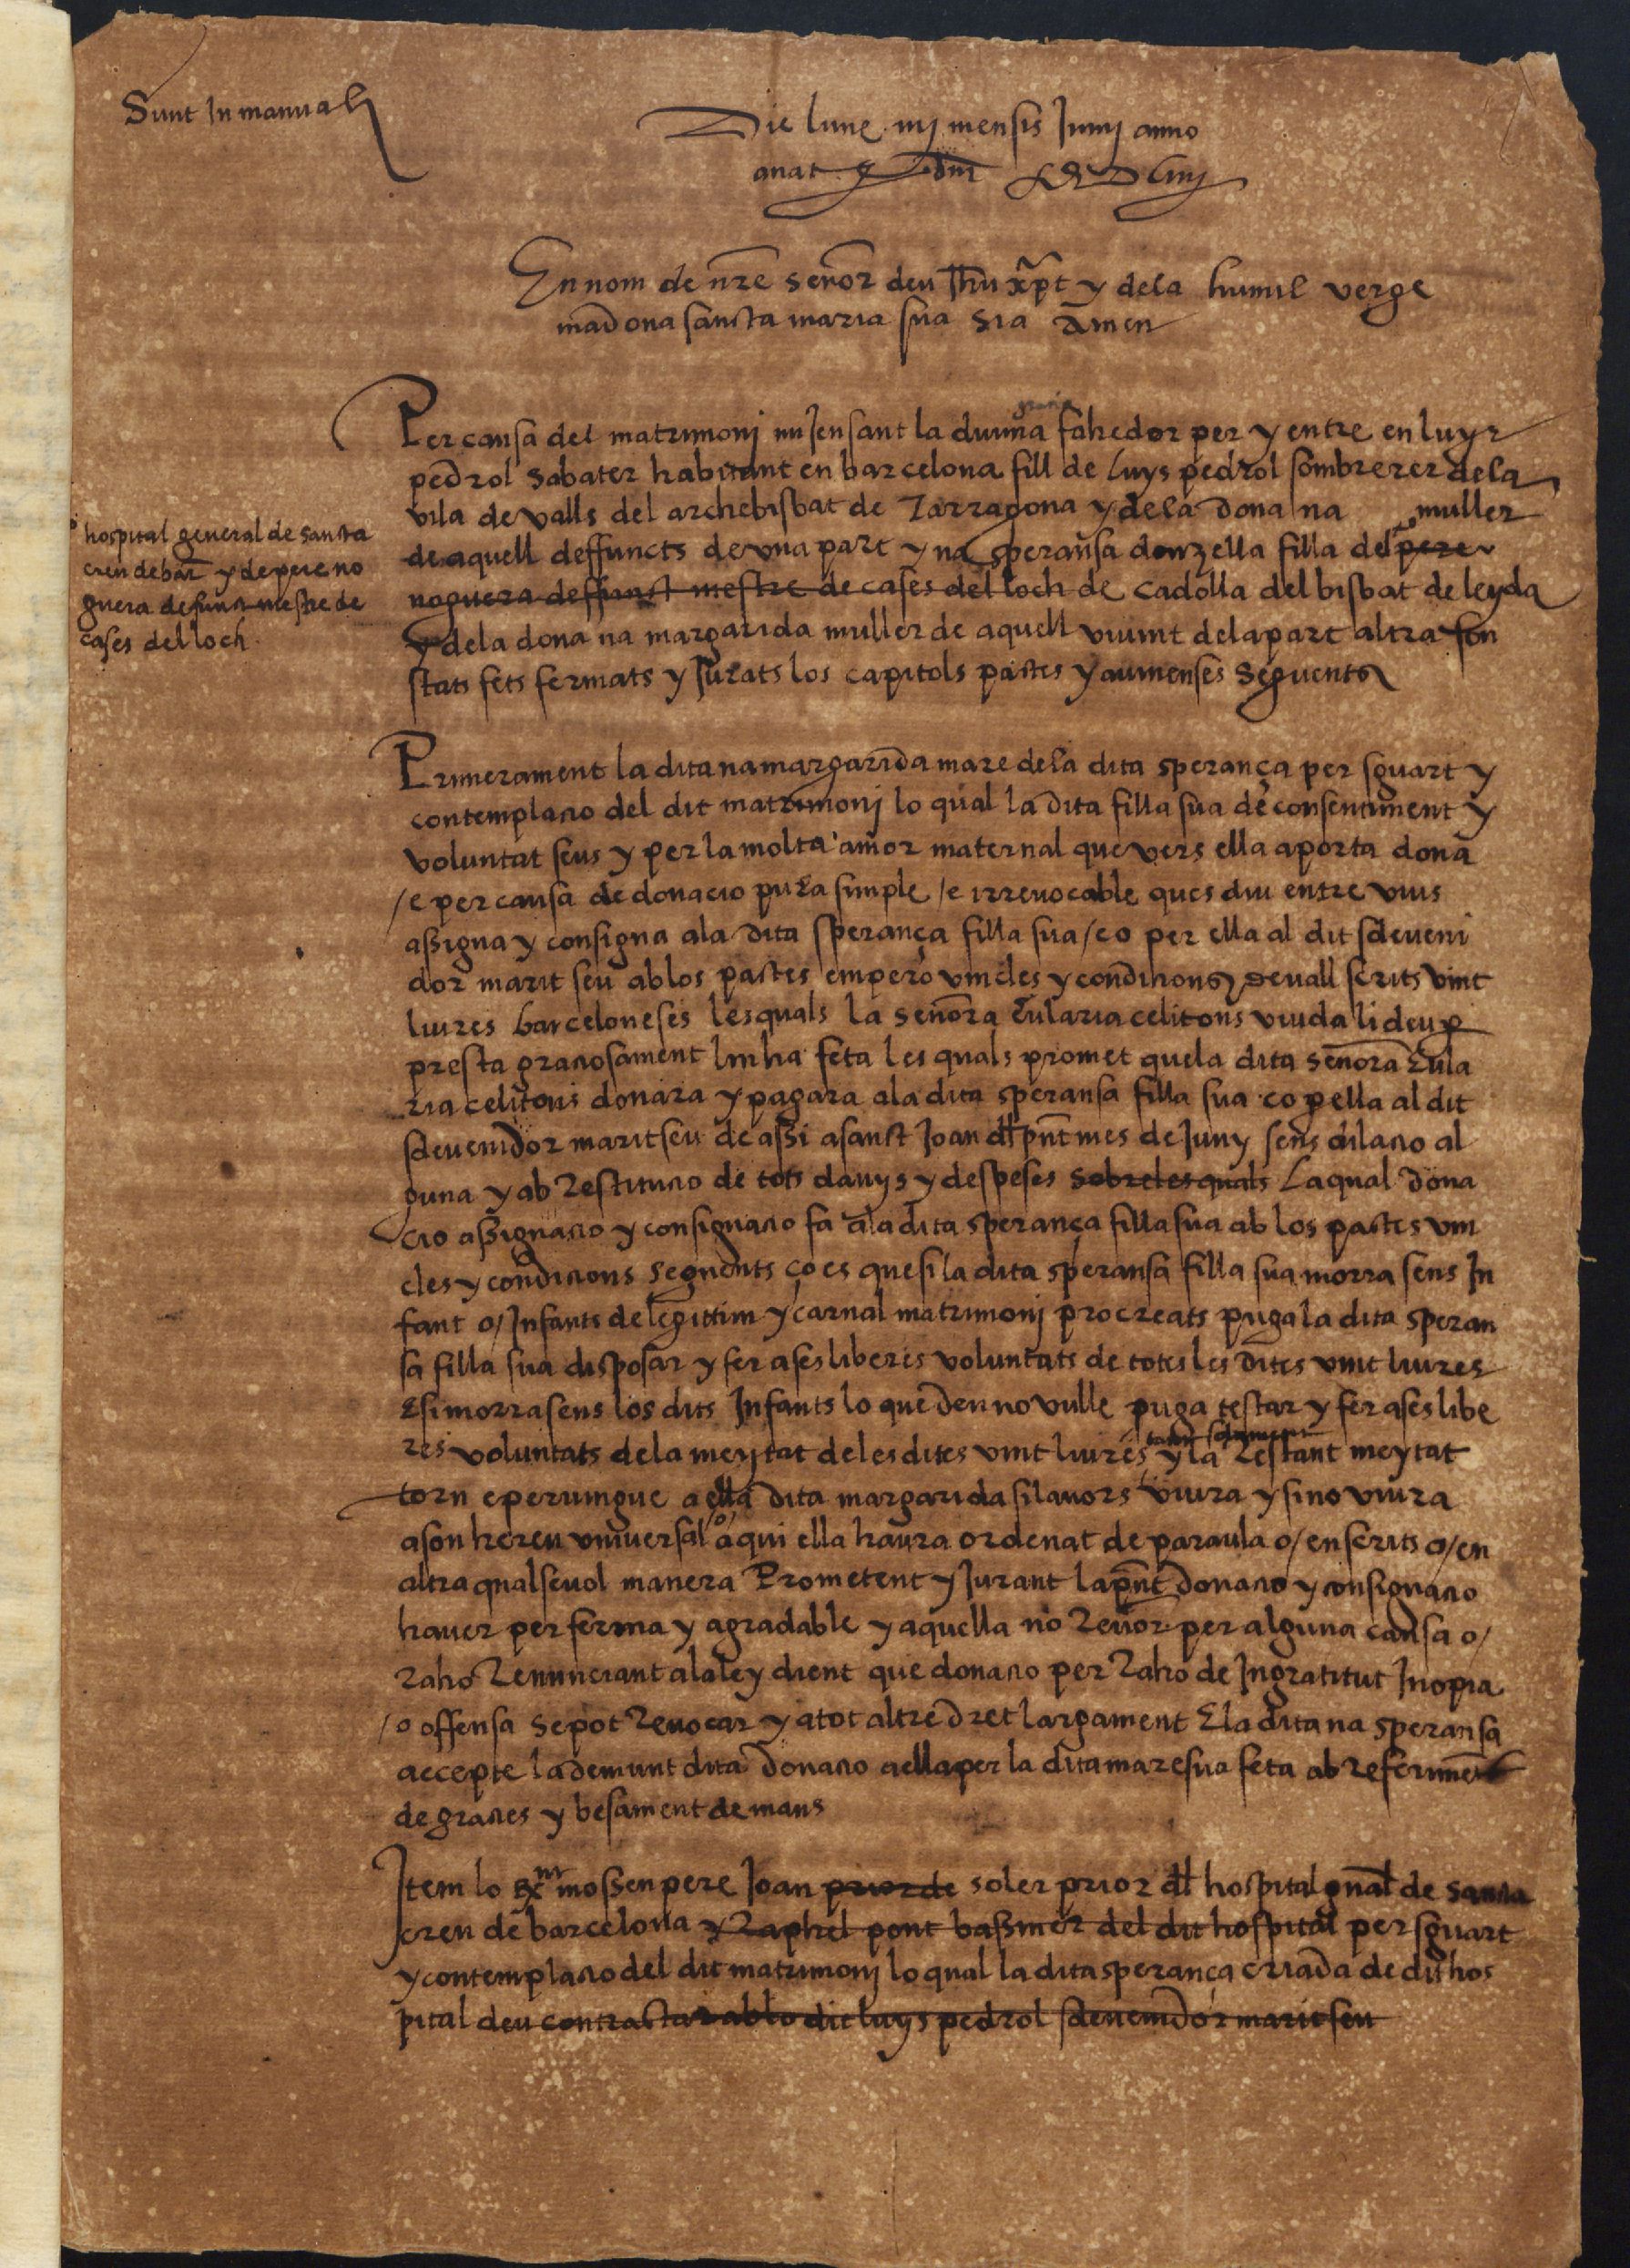 Sunt In manuali
Die lune iiij mensis Junij anno
anat dni MDLiiij
En nom de nre senor deu Jhu xpt y dela humil verge
madona sancta maria sua sia Amen
Per causa del matrimonj mijensant la divina gratia fahedor per y entre en luys
pedrol sabater habitant en barcelona fill de luys pedrol sombrerer dela
vila de valls del archebisbat de Tarragona y dela dona na muller
de aquell deffuncts de una part y na speransa donzella filla del pere
noguera deffunct mestre de cases del loch de cadolla del bisbat de leyda
y dela dona na margarida muller de aquell vivint dela part altra son
stats fets fermats y Jurats los capitols pactes y avinenses seguents
hospital general de sancta
creu de bar y de pere no
guera defunct mestre de
cases del loch
Primerament la dita na margarida mare dela dita sperança per sguart y
contemplacio del dit matrimonj lo qual la dita filla sua de consentiment y
voluntat seus y per la molta amor maternal que vers ella aporta dona
/e per causa de donacio pura simple /e irrevocable ques diu entre vius
assigna y consigna ala dita sperança filla sua /ço per ella al dit sdeveni
dor marit seu ab los pactes empero vincles y condicions devall scrits vint
liures barceloneses les quals la senora Eularia celitons viuda li deu p
presta graciosament linha feta les quals promet quela dita senora Eula
ria celitons donara y pagara ala dita speransa filla sua ço p ella al dit
sdevenidor marit seu de assi a sanct Joan dl pnt mes de Juny sens dilacio al
guna y ab Restitucio de tots danys y despeses sobre les quals La qual dona
cio assignacio y consignacio fa ala dita sperança filla sua ab los pactes vin
cles y condicions seguents ço es que si la dita speransa filla sua morra sens In
fant o/ Infants de legittim y carnal matrimonj procreats puga la dita speran
sa filla sua disposar y fer a ses liberes voluntats de totes les dites vint liures
E si morra sens los dits Infants lo que deu no vulle puga testar y fer a ses libe
res voluntats dela meytat deles dites vint liures tant solament y la Restant meytat
torn e pervingue a ella dita margarida si lavors viura y si no viura
a son hereu universal /o/ a qui ella haura ordenat de paraula o/ en scrits o/ en
altra qualsevol manera Prometent y Jurant la pnt donacio y consignacio
haver per ferma y agradable y aquella no Revocar per alguna causa o/
Raho Renunciant ala ley dient que donacio per Raho de Ingratitut Inopia
/o offensa se pot Revocar y a tot altre dret largament E la dita na speransa
accepte la demunt dita donacio a ella per la dita mare sua feta ab Referiment
de gracies y besament de mans
Item lo Rnt mossen pere Joan prior de soler prior dl hospital gnal de sancta
creu de barcelona y Raphel pont bassiner del dit hospital per sguart
y contemplacio del dit matrimonj lo qual la dita sperança criada de dit hos
pital deu contractar ab lo dit luys pedrol sdevenidor marit seu